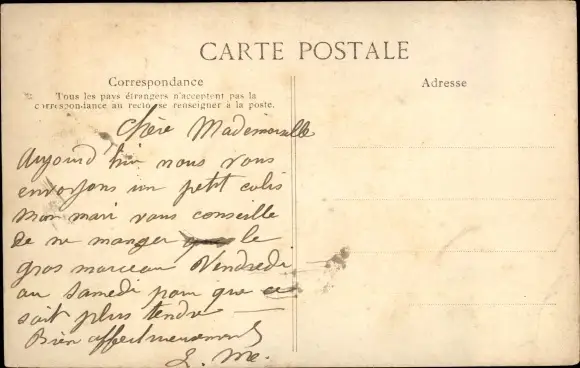 CARTE POSTALE
Correspondance
Tous les pays étrangers n'acceptent pas la
correspondance au recto, se renseigner à la poste.
Adresse
Chère Mademoiselle
Aujourd'hui nous vous
envoyons un petit colis
mon mari vous conseille
de ne manger que le
gros morceau Vendredi
au Samedi pour que ce
soit plus tendre
Bien affectueusement